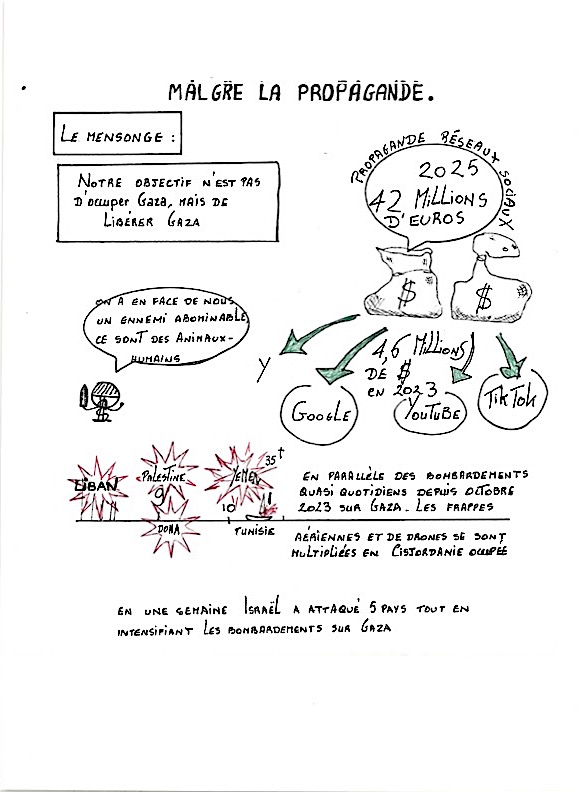 MALGRE LA PROPAGANDE.
LE MENSONGE :
NOTRE OBJECTIF N'EST PAS
D'OCCUPER GAZA, MAIS DE
LIBÉRER GAZA
PROPAGANDE RÉSEAUX SOCIAUX
2025
42 MILLIONS
D'EUROS
$
$
ON A EN FACE DE NOUS
UN ENNEMI ABOMINABLE
CE SONT DES ANIMAUX-
HUMAINS
4,6 MILLIONS
DE $
EN 2023
Y
GOOGLE
YOUTUBE
TIKTOK
LIBAN
PALESTINE
9
YEMEN
35 †
10
11
DOHA
TUNISIE
EN PARALLÈLE DES BOMBARDEMENTS
QUASI QUOTIDIENS DEPUIS OCTOBRE
2023 SUR GAZA. LES FRAPPES
AÉRIENNES ET DE DRONES SE SONT
MULTIPLIÉES EN CISJORDANIE OCCUPÉE
EN UNE SEMAINE ISRAËL A ATTAQUÉ 5 PAYS TOUT EN
INTENSIFIANT LES BOMBARDEMENTS SUR GAZA